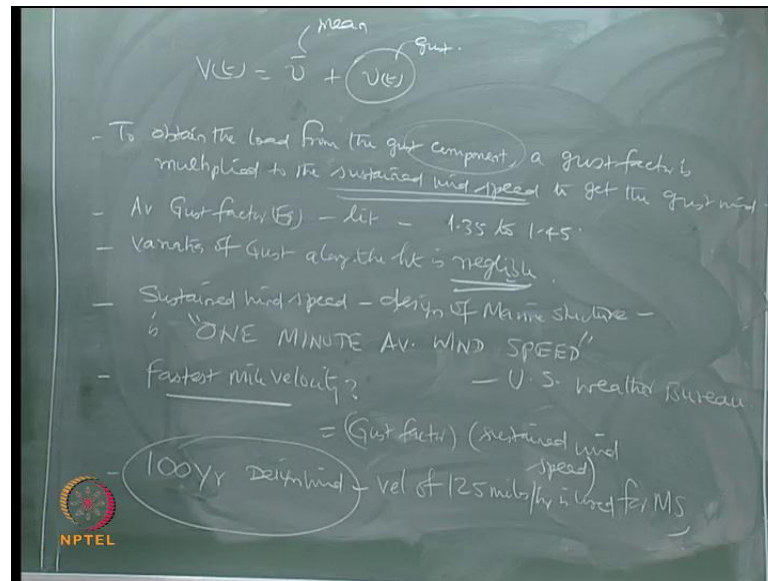 mean
gust.
V(t) = v̄ + v(t)
- To obtain the load from the gust component, a gust factor is
multiplied to the sustained wind speed to get the gust wind
- Av Gust factor (G) - lit - 1.35 to 1.45.
- Variation of Gust along the ht is neglible.
- Sustained wind speed - design of Marine structure -
is "ONE MINUTE AV. WIND SPEED"
- Fastest mile velocity? - U.S. weather Bureau
= (Gust factor) (sustained wind
speed)
- 100 Yr Design wind - vel of 125 miles/hr is used for MS
NPTEL